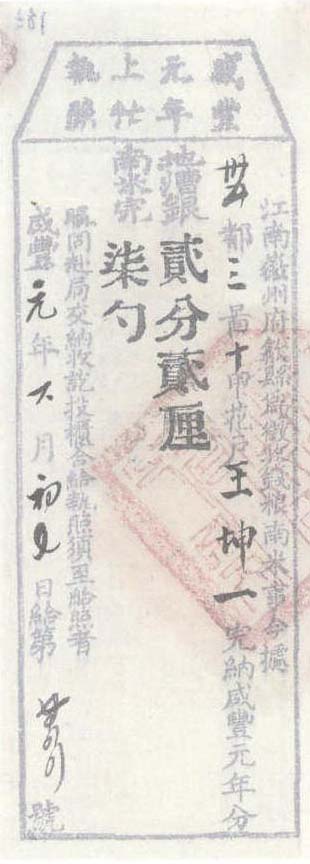 咸豐
元年
上忙
執照
江南徽州府歙縣為徵收錢粮南米事今據
都三啚十甲花户王坤一完納咸豐元年分
地漕銀貳分貳厘
南米完柒勺
眼同赴局交納收訖投櫃合給執照須至給照者
咸豐元年月初日給第號